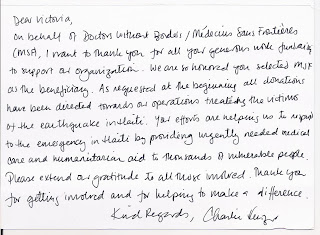 Dear Victoria,
On behalf of Doctors Without Borders / Médecins Sans Frontières
(MSF), I want to thank you for all your generous work fundraising
to support our organization. We are so honored you selected MSF
as the beneficiary. As requested at the beginning all donations
have been directed towards our operations treating the victims
of the earthquake in Haiti. Your efforts are helping us to respond
to the emergency in Haiti by providing urgently needed medical
care and humanitarian aid to thousands of vulnerable people.
Please extend our gratitude to all those involved. Thank you
for getting involved and for helping to make a difference.
Kind Regards, Charlie